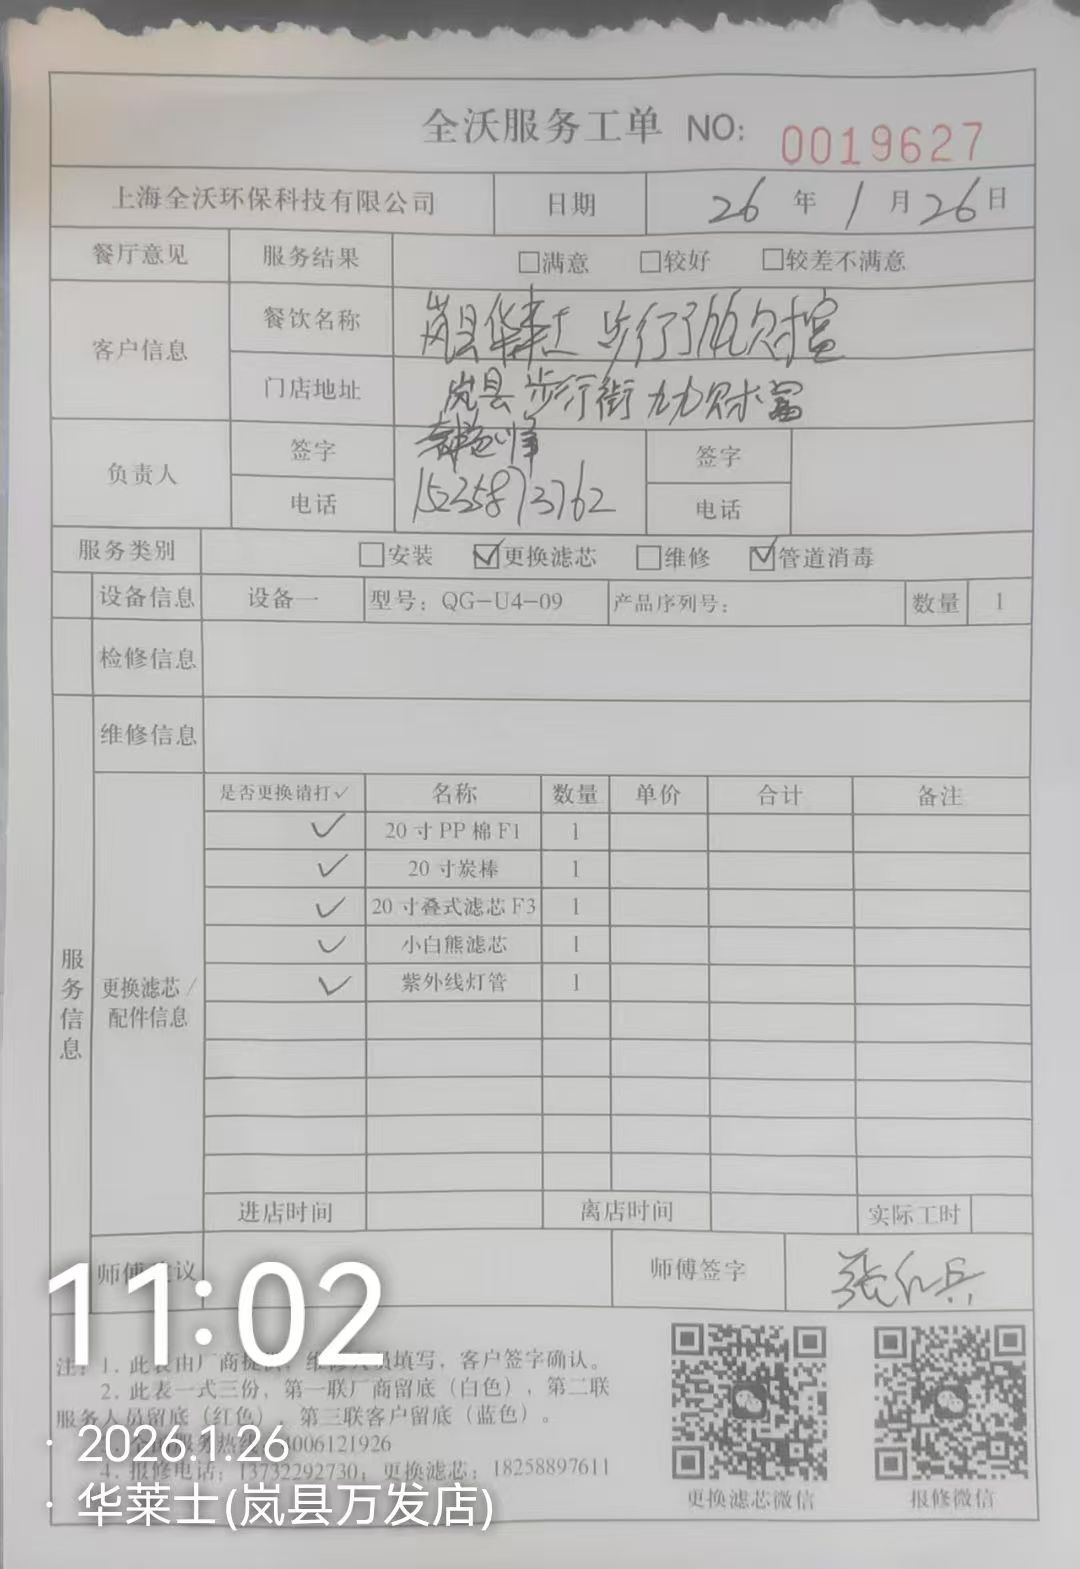 全沃服务工单 NO: 0019627
上海全沃环保科技有限公司 日期 26 年 1 月 26 日
餐厅意见 服务结果 □满意 □较好 □较差不满意
客户信息 餐饮名称 岚县华莱士 步行
门店地址 岚县步行街 财富
负责人 签字 签字
电话 15235873762 电话
服务类别 □安装 ☑更换滤芯 □维修 ☑管道消毒
设备信息 设备一 型号：QG-U4-09 产品序列号： 数量 1
检修信息
维修信息
服务信息
更换滤芯/
配件信息
是否更换请打✓ 名称 数量 单价 合计 备注
✓ 20寸PP棉F1 1
✓ 20寸炭棒 1
✓ 20寸叠式滤芯F3 1
✓ 小白熊滤芯 1
✓ 紫外线灯管 1
进店时间 离店时间 实际工时
师傅 议 师傅签字
11:02
注：1. 此表由厂商提供，维修人员填写，客户签字确认。
2. 此表一式三份，第一联厂商留底（白色），第二联
服务人员留底（红色），第三联客户留底（蓝色）。
服务热线 4006121926
4. 报修电话：13732292730；更换滤芯：18258897611
更换滤芯微信 报修微信
· 2026.1.26
· 华莱士(岚县万发店)